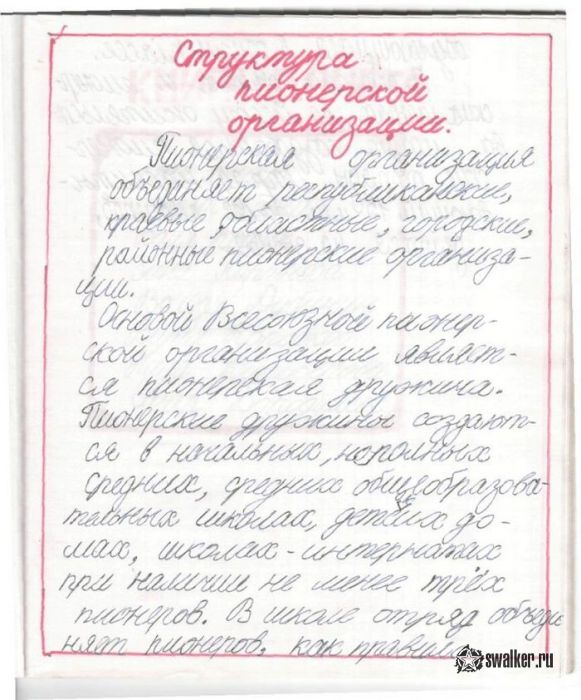 Структура
пионерской
организации.
Пионерская организация
объединяет республиканские,
краевые, областные, городские,
районные пионерские организа-
ции.
Основой Всесоюзной пионер-
ской организации являет-
ся пионерская дружина.
Пионерские дружины создают-
ся в начальных, неполных
средних, средних общеобразова-
тельных школах, детских до-
мах, школах-интернатах
при наличии не менее трёх
пионеров. В школе отряд объеди
няет пионеров, как правило
swalker.ru